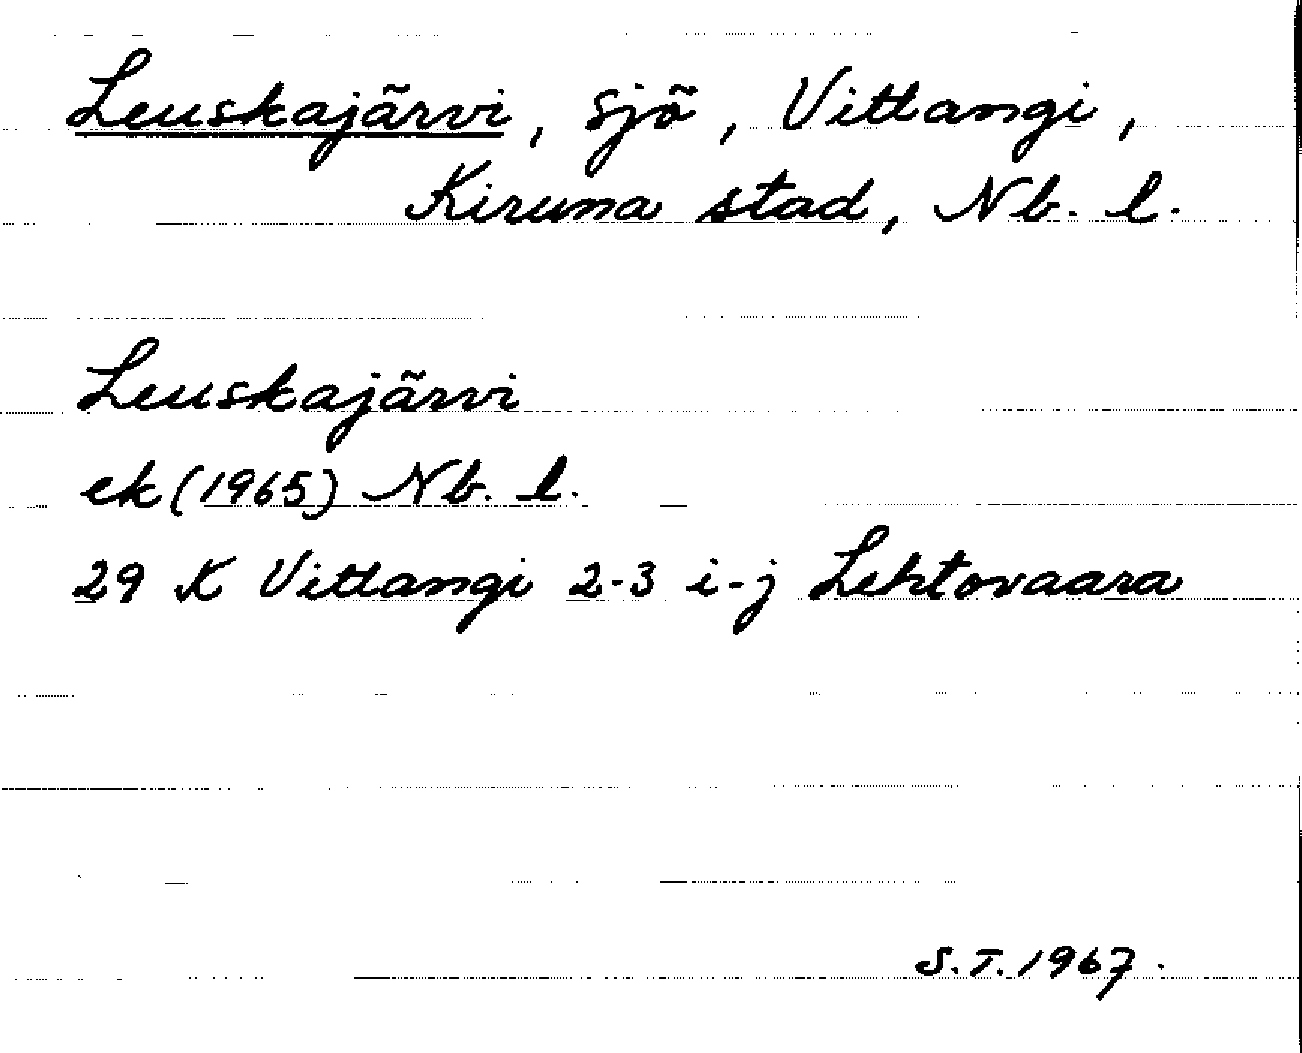 Leuskajärvi, sjö, Vittangi,
Kiruna stad, Nb. l.
Leuskajärvi
ek (1965) Nb. l.
29 K Vittangi 2-3 i-j Lehtovaara
S.T. 1967.